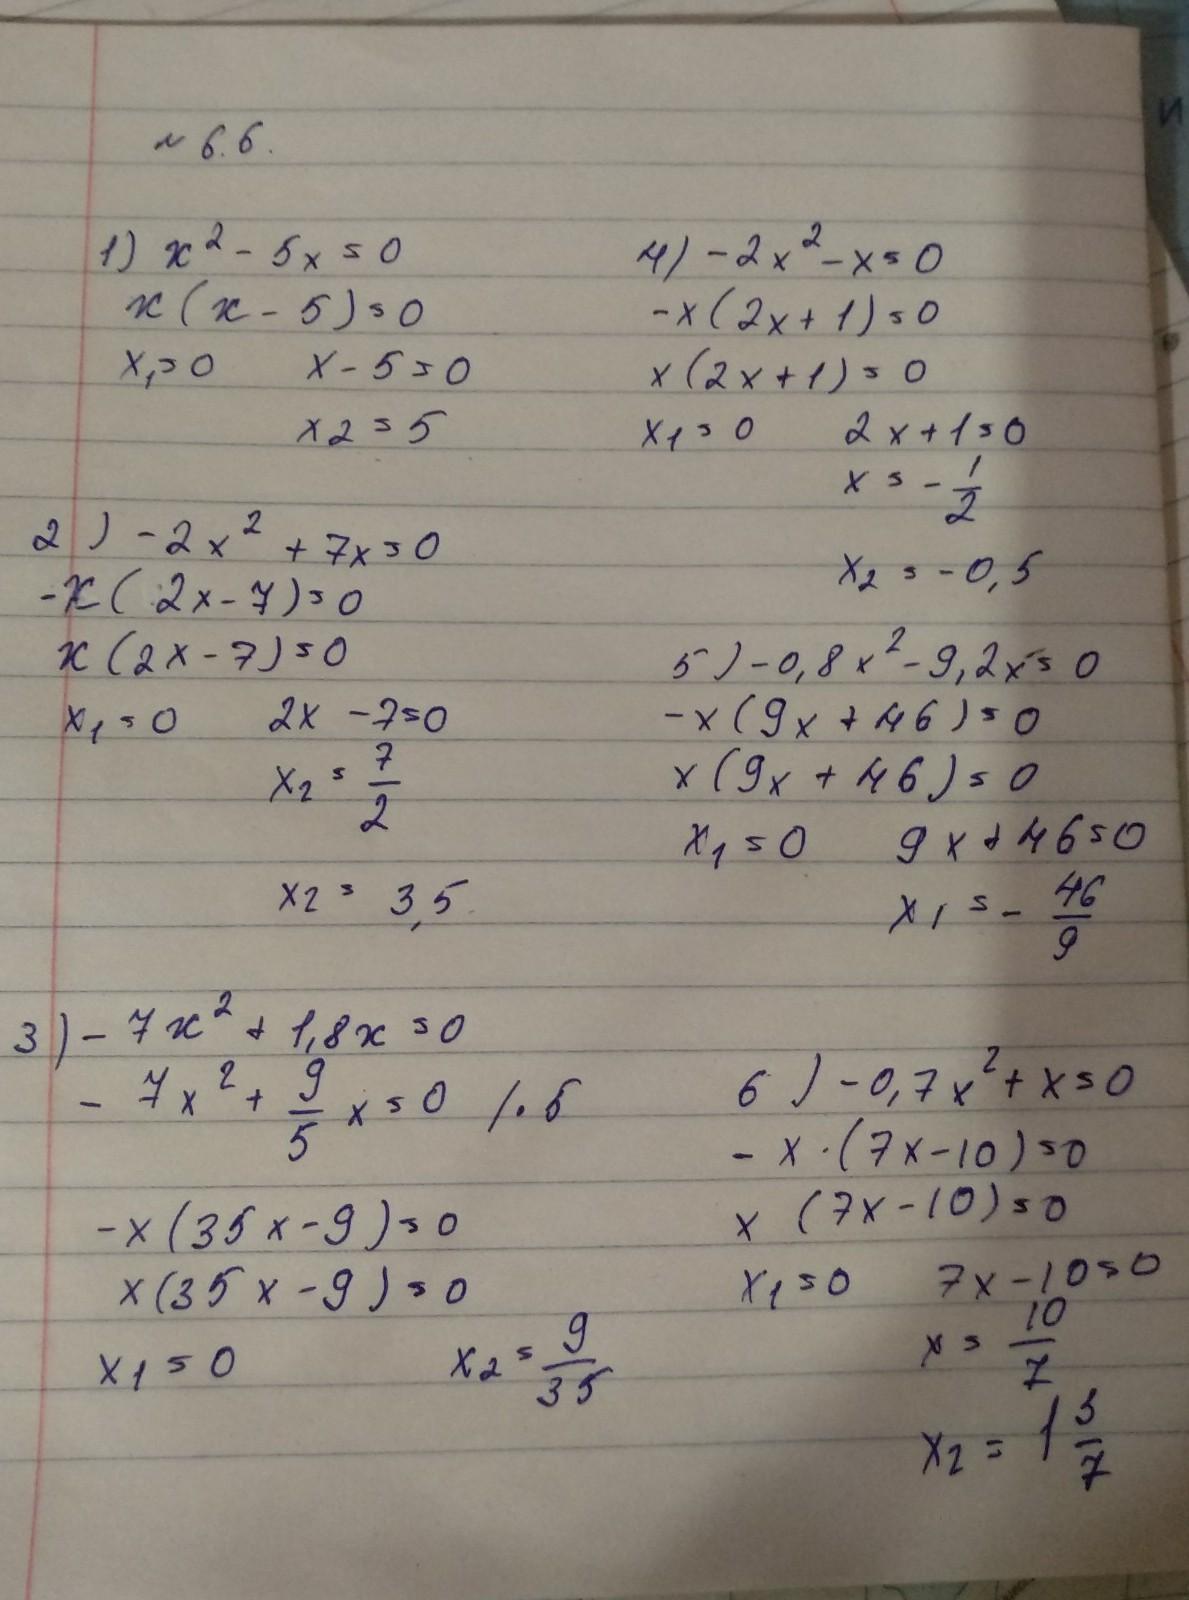 № 6.6.
1) x² - 5x = 0
x(x - 5) = 0
x₁ = 0 x - 5 = 0
x₂ = 5
2) -2x² + 7x = 0
-x(2x - 7) = 0
x(2x - 7) = 0
x₁ = 0 2x - 7 = 0
x₂ = 7/2
x₂ = 3,5
3) -7x² + 1,8x = 0
-7x² + 9/5 x = 0 /·5
-x(35x - 9) = 0
x(35x - 9) = 0
x₁ = 0 x₂ = 9/35
4) -2x² - x = 0
-x(2x + 1) = 0
x(2x + 1) = 0
x₁ = 0 2x + 1 = 0
x = -1/2
x₂ = -0,5
5) -0,8x² - 9,2x = 0
-x(9x + 46) = 0
x(9x + 46) = 0
x₁ = 0 9x + 46 = 0
x₁ = -46/9
6) -0,7x² + x = 0
-x·(7x - 10) = 0
x(7x - 10) = 0
x₁ = 0 7x - 10 = 0
x = 10/7
x₂ = 1 3/7